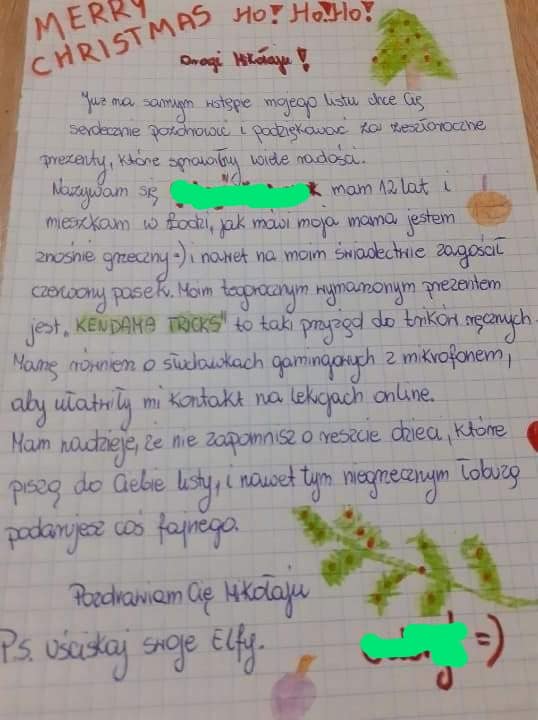 MERRY
CHRISTMAS
HO! HO! HO!
Drogi Mikołaju!
Już na samym wstępie mojego listu chcę Cię
serdecznie pozdrowić i podziękować za zeszłoroczne
prezenty, które sprawiły wiele radości.
Nazywam się mam 12 lat i
mieszkam w Łodzi, jak mówi moja mama jestem
znośnie grzeczny =) i nawet na moim świadectwie zagościł
czerwony pasek. Moim tegorocznym wymarzonym prezentem
jest „KENDAMA TRICKS" to taki przyrząd do trików ręcznych.
Marzę również o słuchawkach gamingowych z mikrofonem,
aby ułatwiły mi kontakt na lekcjach online.
Mam nadzieję, że nie zapomnisz o reszcie dzieci, które
piszą do Ciebie listy, i nawet tym niegrzecznym łobuzą
podarujesz coś fajnego.
Pozdrawiam Cię Mikołaju
P.s. Uściskaj swoje Elfy.
=)